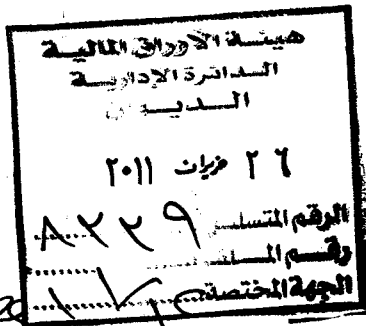 هيئة الاوراق المالية
الدائرة الإدارية
الديوان
٢٦ حزيران ٢٠١١
الرقم المتسلسل ٨٢٢٩
رقم الملف
الجهة المختصة